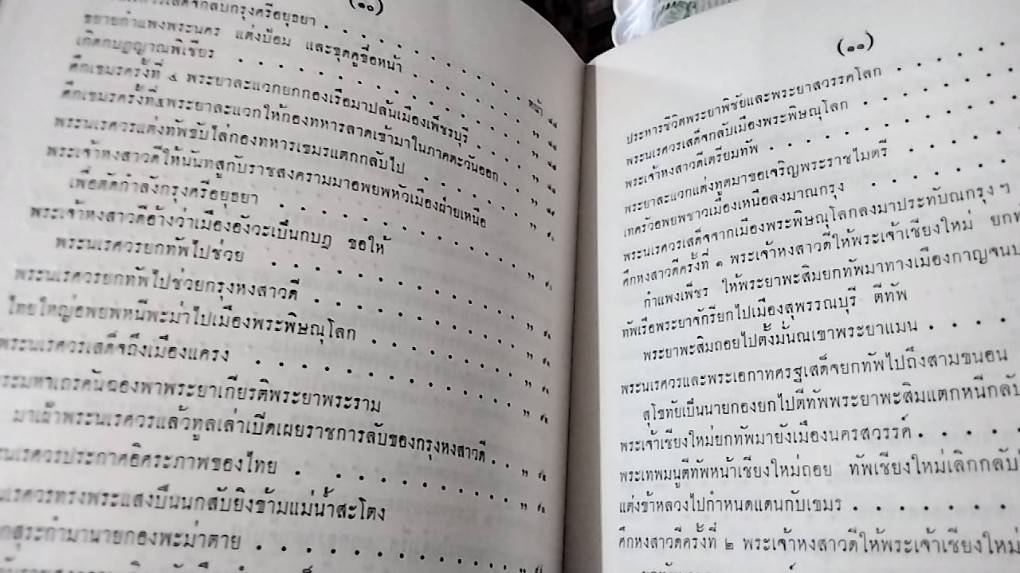 (๑๐)
เสด็จกลับกรุงศรีอยุธยา
หน้า
ขยายกำแพงพระนคร แต่งป้อม และขุดคูขื่อหน้า
เกิดกบฏญาณพิเชียร
ศึกเขมรครั้งที่ ๔ พระยาละแวกยกกองเรือมาปล้นเมืองเพ็ชรบุรี
ศึกเขมรครั้งที่ ๕ พระยาละแวกให้กองทหารลาดเข้ามาในภาคตะวันออก
พระนเรศวรแต่งทัพขับไล่กองทหารเขมรแตกกลับไป
พระเจ้าหงสาวดีให้นันทสูกับราชสงครามมาอพยพหัวเมืองฝ่ายเหนือ
เพื่อตัดกำลังกรุงศรีอยุธยา
พระเจ้าหงสาวดีอ้างว่าเมืองอังวะเป็นกบฏ ขอให้
พระนเรศวรยกทัพไปช่วย
พระนเรศวรยกทัพไปช่วยกรุงหงสาวดี
ไทยใหญ่อพยพหนีพะม่าไปเมืองพระพิษณุโลก
พระนเรศวรเสด็จถึงเมืองแครง
พระมหาเถรคันฉ่องพาพระยาเกียรติพระยาพระราม
มาเฝ้าพระนเรศวรแล้วทูลเล่าเปิดเผยราชการลับของกรุงหงสาวดี
นเรศวรประกาศอิศระภาพของไทย
นเรศวรทรงพระแสงปืนนกสับยิงข้ามแม่น้ำสะโตง
กสุระกำมานายกองพะม่าตาย
(๑๑)
ประหารชีวิตพระยาพิชัยและพระยาสวรรคโลก
พระนเรศวรเสด็จกลับเมืองพระพิษณุโลก
พระเจ้าหงสาวดีเตรียมทัพ
พระยาละแวกแต่งทูตมาขอเจริญพระราชไมตรี
เทครัวอพยพชาวเมืองเหนือลงมาณกรุง
พระนเรศวรเสด็จจากเมืองพระพิษณุโลกลงมาประทับณกรุง ฯ
ศึกหงสาวดีครั้งที่ ๑ พระเจ้าหงสาวดีให้พระเจ้าเชียงใหม่ ยกทั
กำแพงเพ็ชร ให้พระยาพะสิมยกทัพมาทางเมืองกาญจนบ
ทัพเรือพระยาจักรียกไปเมืองสุพรรณบุรี ตีทัพ
พระยาพะสิมถอยไปตั้งมั่นณเขาพระยาแมน
พระนเรศวรและพระเอกาทศรฐเสด็จยกทัพไปถึงสามขนอน
สุโขทัยเป็นนายกองยกไปตีทัพพระยาพะสิมแตกหนีกลับ
พระเจ้าเชียงใหม่ยกทัพมายังเมืองนครสวรรค์
พระเทพมนูตีทัพหน้าเชียงใหม่ถอย ทัพเชียงใหม่เลิกกลับ
แต่งข้าหลวงไปกำหนดแดนกับเขมร
ศึกหงสาวดีครั้งที่ ๒ พระเจ้าหงสาวดีให้พระเจ้าเชียงใหม่